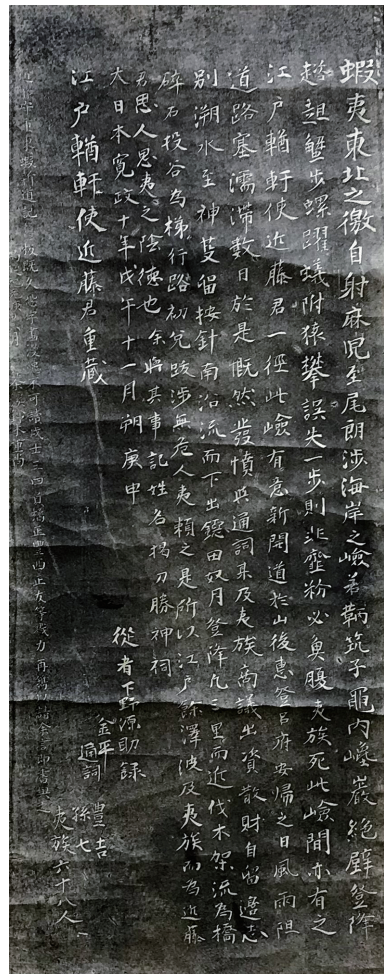 蝦夷東北之徼自射麻児至尾朗渉海岸之嶮若鞆筑子黽内嶝巌絶壁登降
趦趄蟹歩螺躍蟻附猿攀誤失一歩則非虀粉必魚腹夷族死此嶮間亦有之
江戸輶軒使近藤君一径此嶮有意新開道於山後恵登呂府安帰之日風雨阻
道路塞濡滞数日於是慨然発憤与通詞某及夷族商議出資散財自留邉志
別溯水至神叟留按針南沿流而下出鐚田奴月登降凡三里而近伐木架流為橋
砕石投谷為梯行路初免跋渉無危人夷頼之是所以江戸余沢波及夷族而為近藤
君思人思夷之陰徳也余将其事記姓名掲刀勝神祠
大日本寛政十年戊午十一月朔庚申
江戸輶軒使近藤君重蔵
従者下野源助録
金平
通詞
豊吉
孫七
夷族六十八人